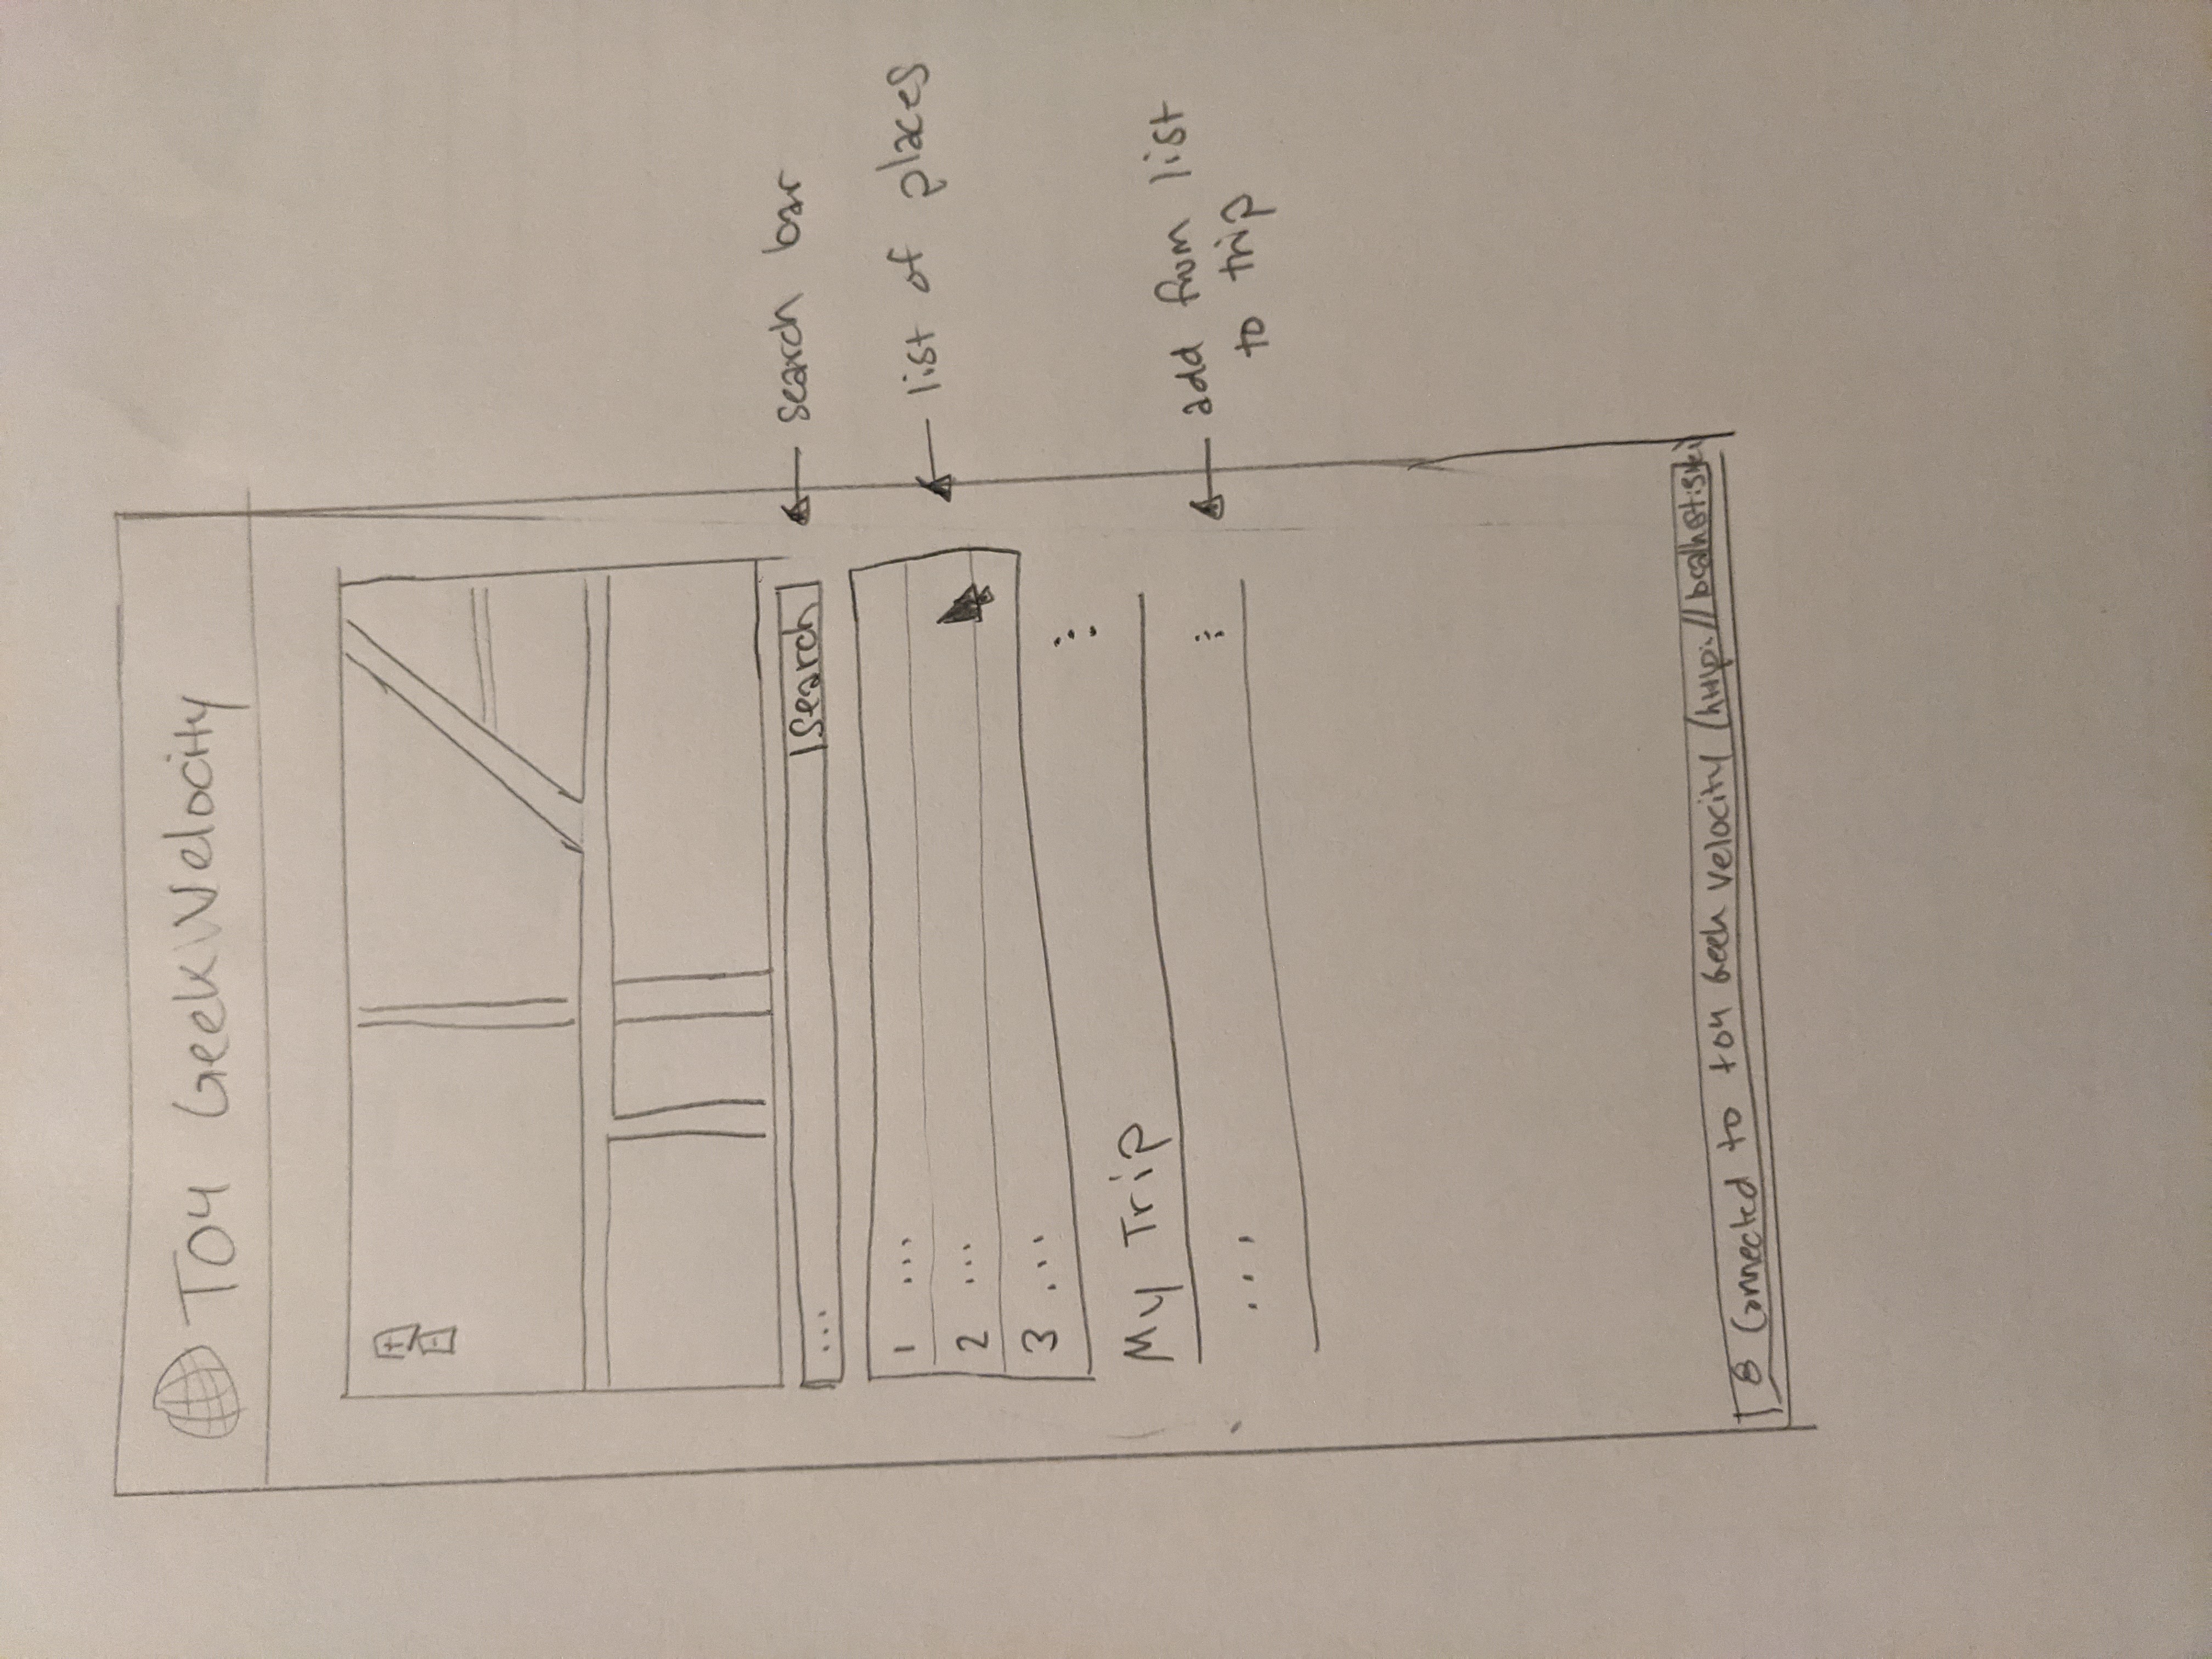 T04 Geek Velocity
+
-
... Search
search bar
1 ...
2 ...
3 ...
list of places
My Trip
...
add from list
to trip
Connected to t04 Geek Velocity (http://localhost: